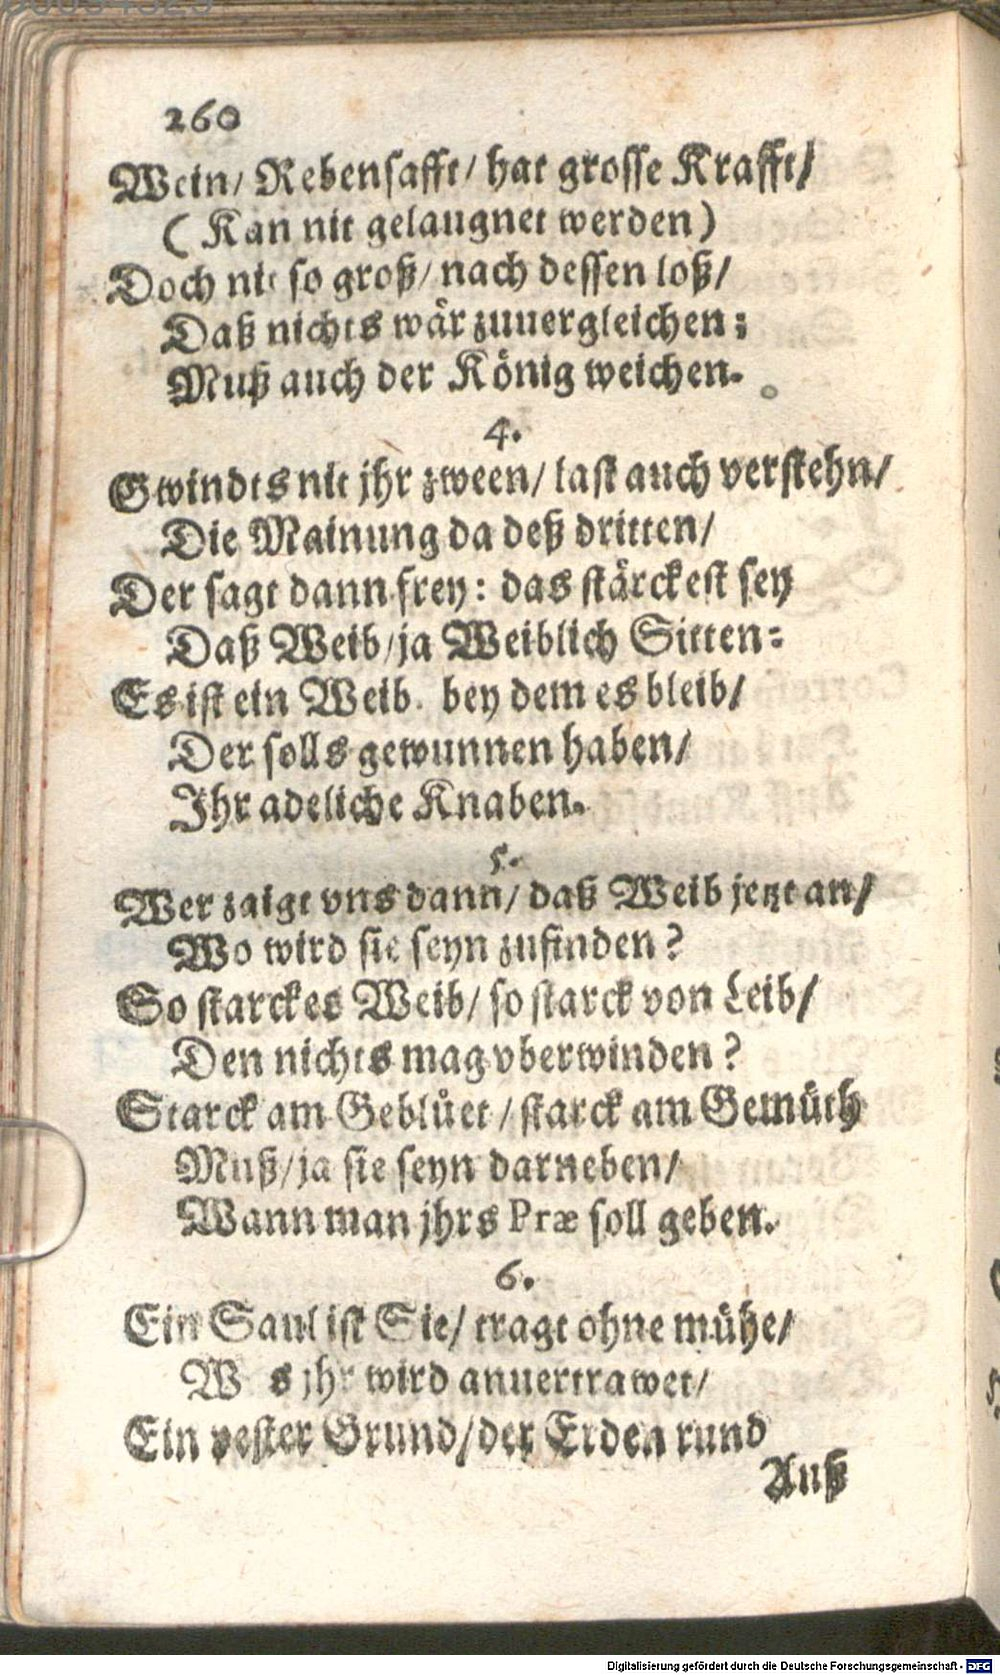 260
Wein/ Rebensafft/ hat grosse Krafft/
( Kan nit gelaugnet werden )
Doch nit so groß/ nach dessen loß/
Daß nichts wär zuuergleichen:
Muß auch der König weichen.
4.
Gwindts nit jhr zween/ last auch verstehn/
Die Mainung da deß dritten/
Der sagt dann frey: das stärckest sey
Daß Weib/ ja Weiblich Sitten:
Es ist ein Weib. bey dem es bleib/
Der solls gewunnen haben/
Jhr adeliche Knaben.
5.
Wer zaigt vns dann/ daß Weib jetzt an/
Wo wird sie seyn zufinden?
So starckes Weib/ so starck von Leib/
Den nichts mag vberwinden?
Starck am Geblůet/ starck am Gemüth
Muß/ ja sie seyn darneben/
Wann man jhrs Præ soll geben.
6.
Ein Saul ist Sie/ tragt ohne mühe/
W s jhr wird anuertrawet/
Ein vester Grund/ der Erden rund
Auß
Digitalisierung gefördert durch die Deutsche Forschungsgemeinschaft - DFG